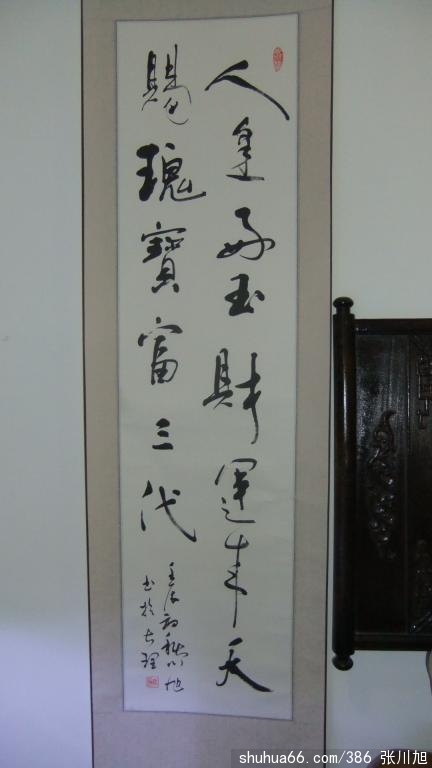 人好玉財運来天
賜瑰寶富三代
壬辰初秋川旭
书於大理
shuhua66.com/386 张川旭